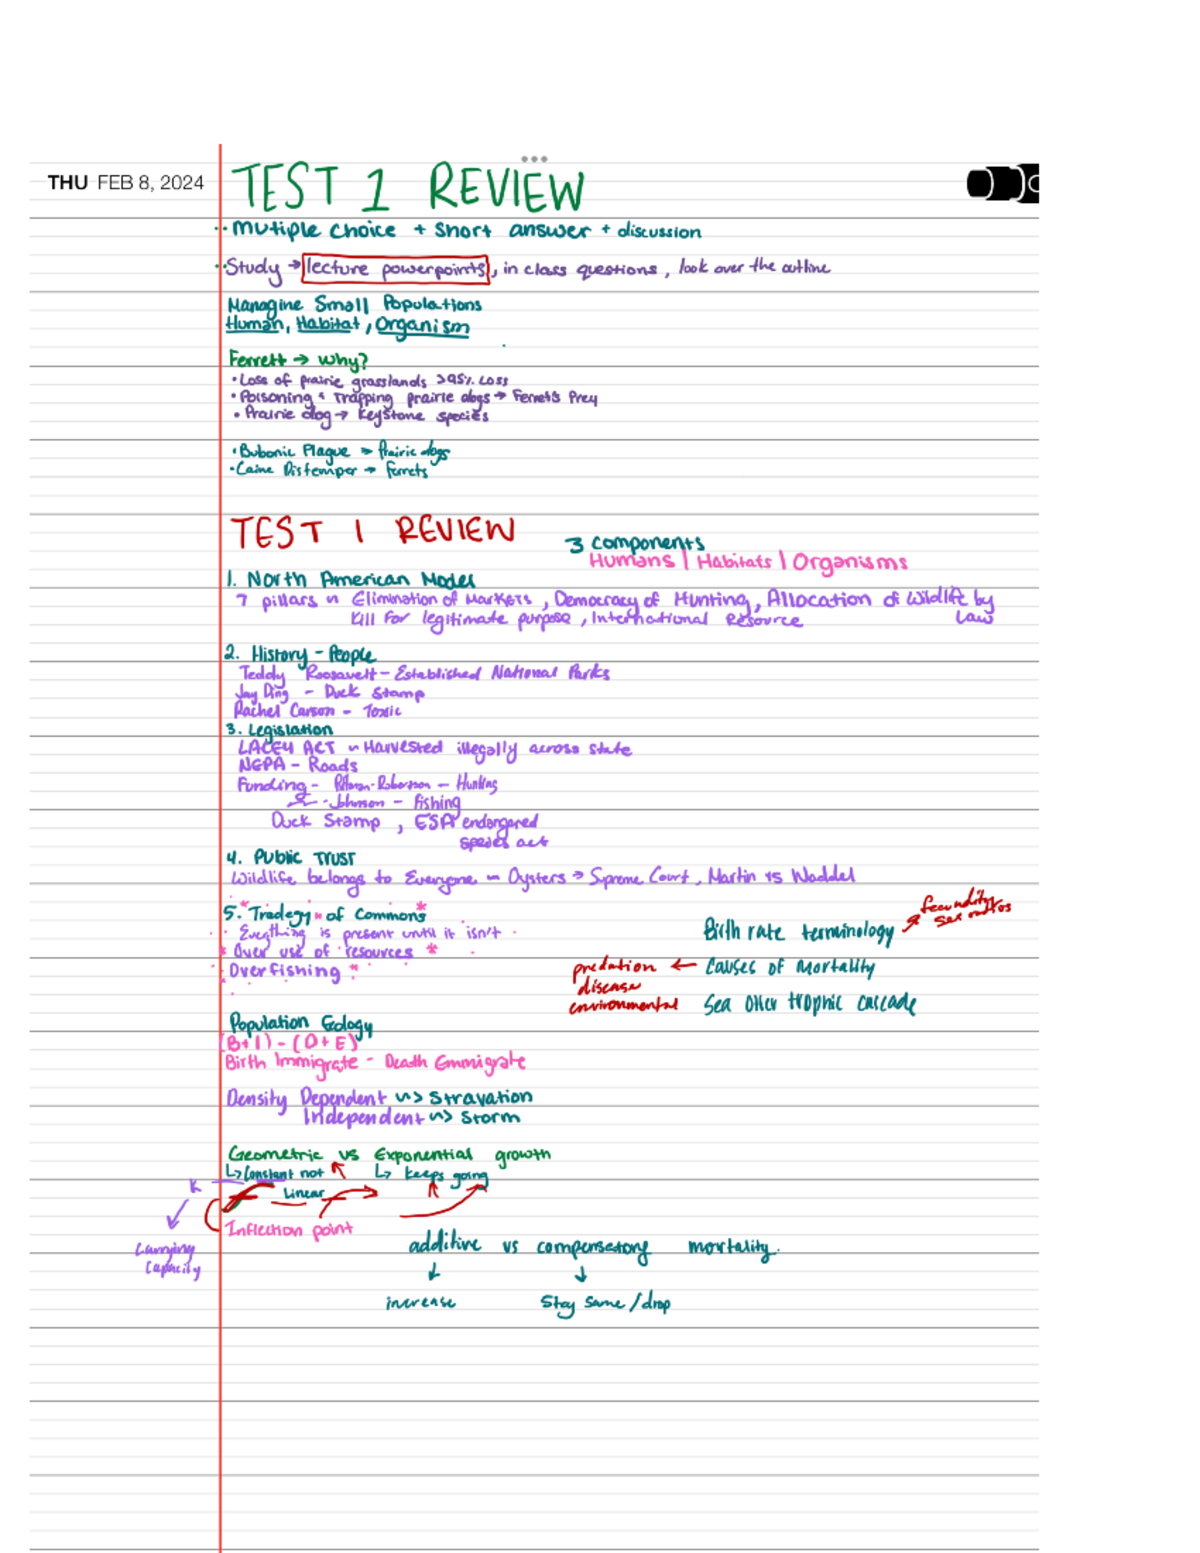 THU FEB 8, 2024
TEST 1 REVIEW
Mutiple choice + Short answer + discussion
Study → lecture powerpoints, in class questions, look over the outline
Managine Small Populations
Human, Habitat, Organism
Ferrett → Why?
• Loss of prairie grasslands >95% Loss
• Poisoning & Trapping prairie dogs → Ferrets Prey
• Prairie dog → Keystone species
• Bubonic Plague → Prairie dogs
• Caine Distemper → Ferrets
TEST 1 REVIEW
3 components
Humans | Habitats | Organisms
1. North American Model
7 pillars ~ Elimination of Markets, Democracy of Hunting, Allocation of Wildlife by Law
Kill For legitimate purpose, International Resource
2. History - People
Teddy Roosavelt - Established National Parks
Jay Ding - Duck Stamp
Rachel Carson - Toxic
3. Legislation
LACEY ACT ~ Harvested illegally across state
NEPA - Roads
Funding - Pitman-Robertson - Hunting
- Johnson - Fishing
Duck Stamp, ESA endangered
species act
4. Public Trust
Wildlife belongs to Everyone ~ Oysters → Supreme Court, Martin vs Waddel
5. Tradegy of Commons
Everything is present until it isn't
Over use of resources
Overfishing
Birth rate terminology → fecundity
sex ratios
predation ← Causes of Mortality
disease
environmental
Sea Otter trophic cascade
Population Ecology
(B+I) - (D+E)
Birth Immigrate - Death Emmigrate
Density Dependent ~> Stravation
Independent ~> Storm
Geometric vs Exponential growth
↳ Constant not ↳ Keeps going
Linear
K
Inflection point
Carrying
Capacity
additive vs compensatory mortality.
↓ ↓
increase Stay same/drop